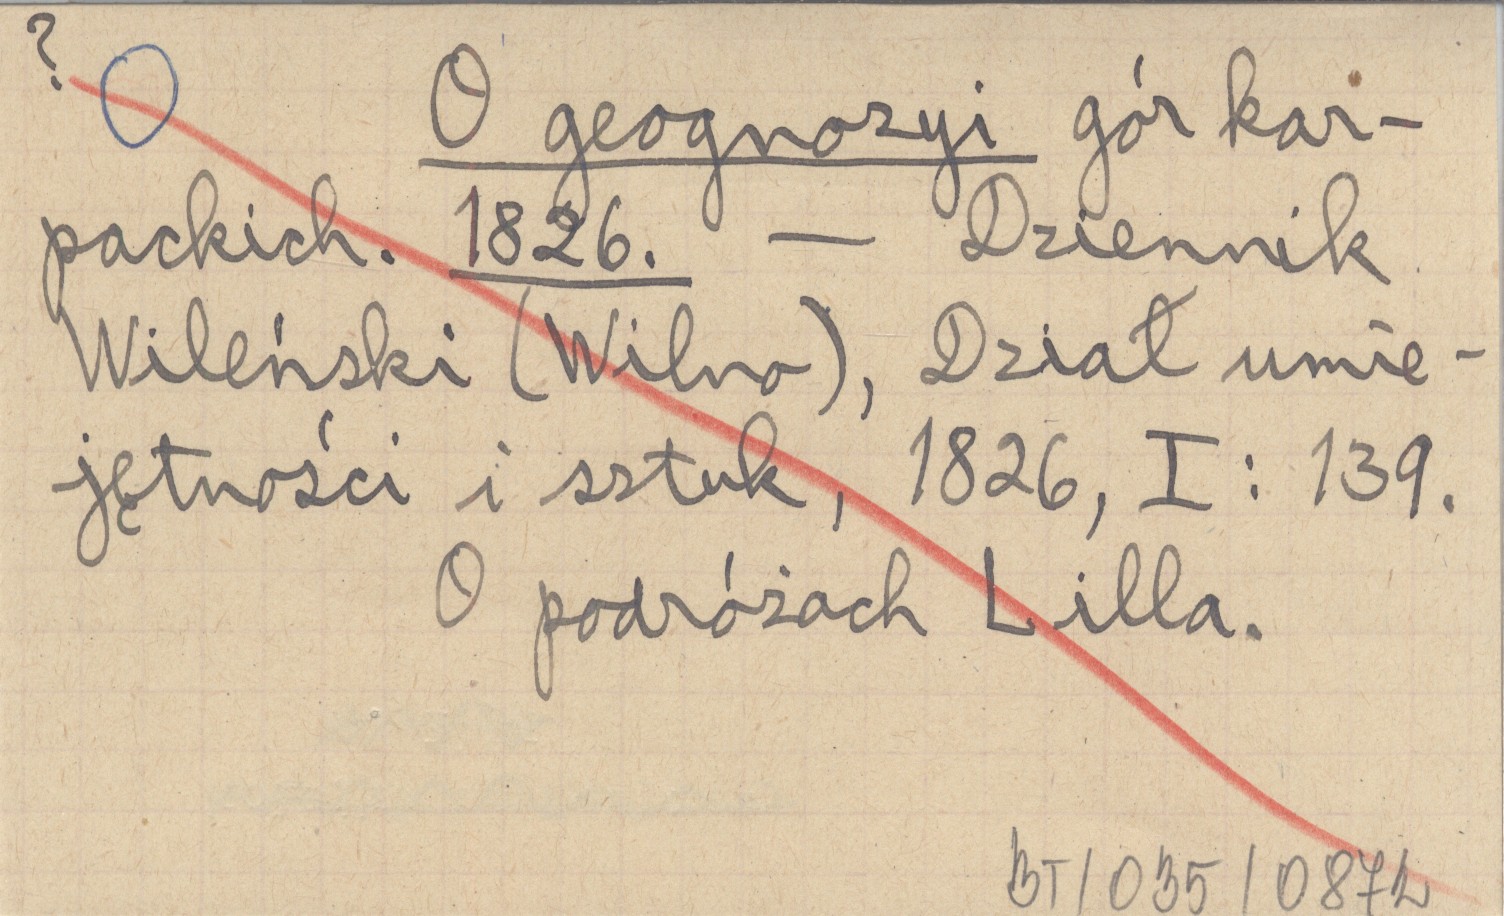 ?
O geognozyi gór kar-
packich. 1826. — Dziennik
Wileński (Wilno), Dział umie-
jętności i sztuk, 1826, I: 139.
O podróżach Lilla.
BT/035/0872